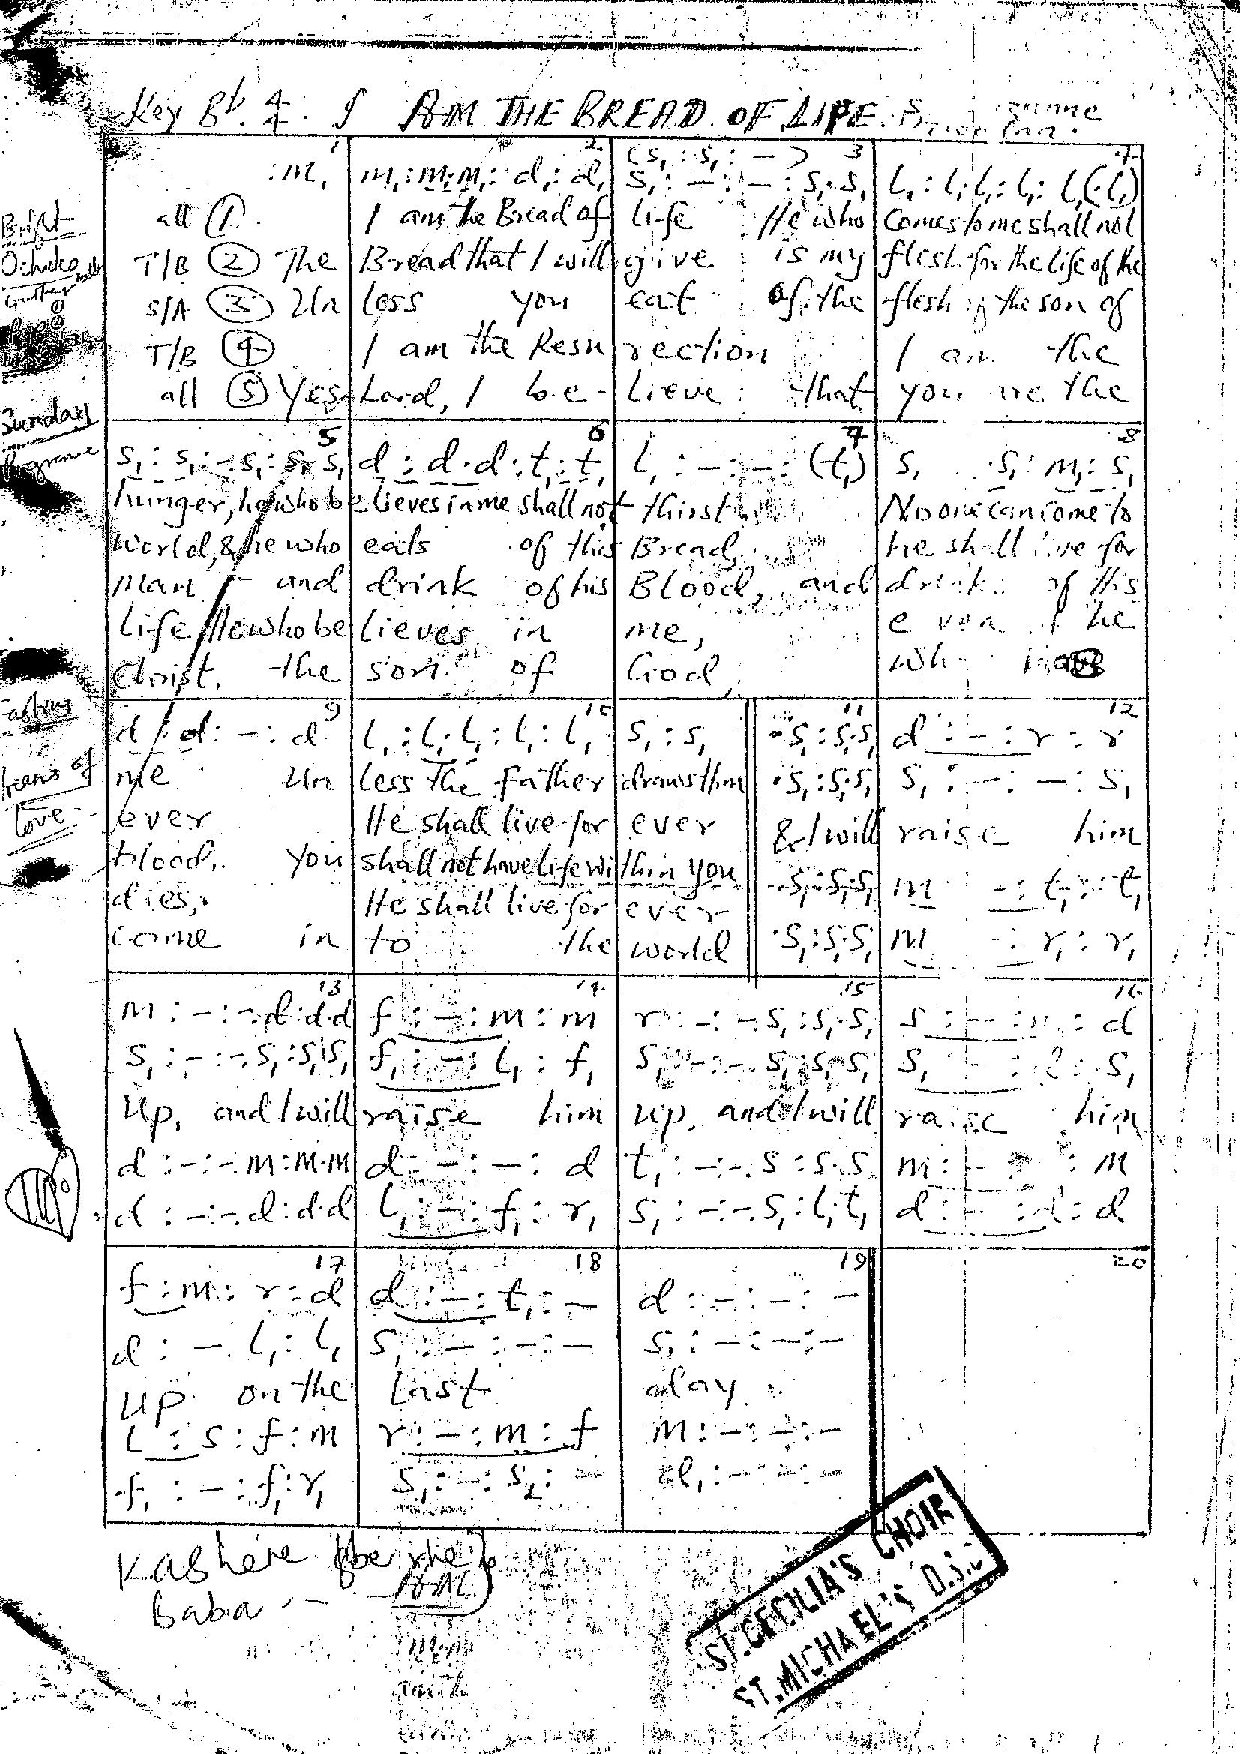 Key Bb. 4/4. I AM THE BREAD OF LIFE.
1
:m,
all ①.
T/B ② The
S/A ③ Un
T/B ④
all ⑤ Yes
2
m,:m,.m,:d,:d,
I am the Bread of
Bread that I will
less you
I am the Resu
Lord, I be-
3
(s,:s,:-)
s,:-:-:s,.s,
life He who
give is my
eat of the
rection
lieve that
4
l,:l,.l,:l,:l,(.l,)
Comes to me shall not
flesh for the life of the
flesh of the son of
I am the
you are the
5
s,:s,:-.s,:s,.s,
hunger, he who be
world, & he who
man and
Life He who be
Christ, the
6
d:d.d:t,:t,
lieves in me shall not
eats of this
drink of his
lieves in
son of
7
l,:-:-:(t,)
thirst
Bread,
Blood, and
me,
God,
8
s, .s,:m,:s,
No one can come to
he shall live for
drink of His
even if he
who
9
d:d:-:d
me Un
ever
blood, you
dies,
come in
10
l,:l,.l,:l,:l,
less the Father
He shall live for
shall not have life wi
He shall live for
to the
s,:s,
draws him
ever
thin you
ever
world
11
.s,:s,.s,
.s,:s,.s,
& I will
.s,:s,.s,
.s,:s,.s,
12
d:-:r:r
s,:-:-:s,
raise him
m -:t,:t,
m -:r,:r,
13
m:-:-.d:d.d
s,:-:-.s,:s,.s,
Up, and I will
d:-:-.m:m.m
d:-:-.d:d.d
14
f:-:m:m
f,:-:l,:f,
raise him
d:-:-:d
l,:-:f,:r,
15
r:-:-.s,:s,.s,
s,:-:-.s,:s,.s,
up, and I will
t,:-:-.s:s.s
s,:-:-.s,:l,.t,
16
s:-:m:d
raise him
d:-:d:d
17
f:m:r:d
d:-.l,:l,
up on the
l:s:f:m
f,:-:f,:r,
18
d:-:t,:-
s,:-:-:-
Last
r:-:m:f
s,:-:s₂:-
19
d:-:-:-
s,:-:-:-
day.
m:-:-:-
d,:-:-:-
20
Sunday
Love
Baba
ST. CECILIA'S CHOIR
ST. MICHAEL'S D.S.C